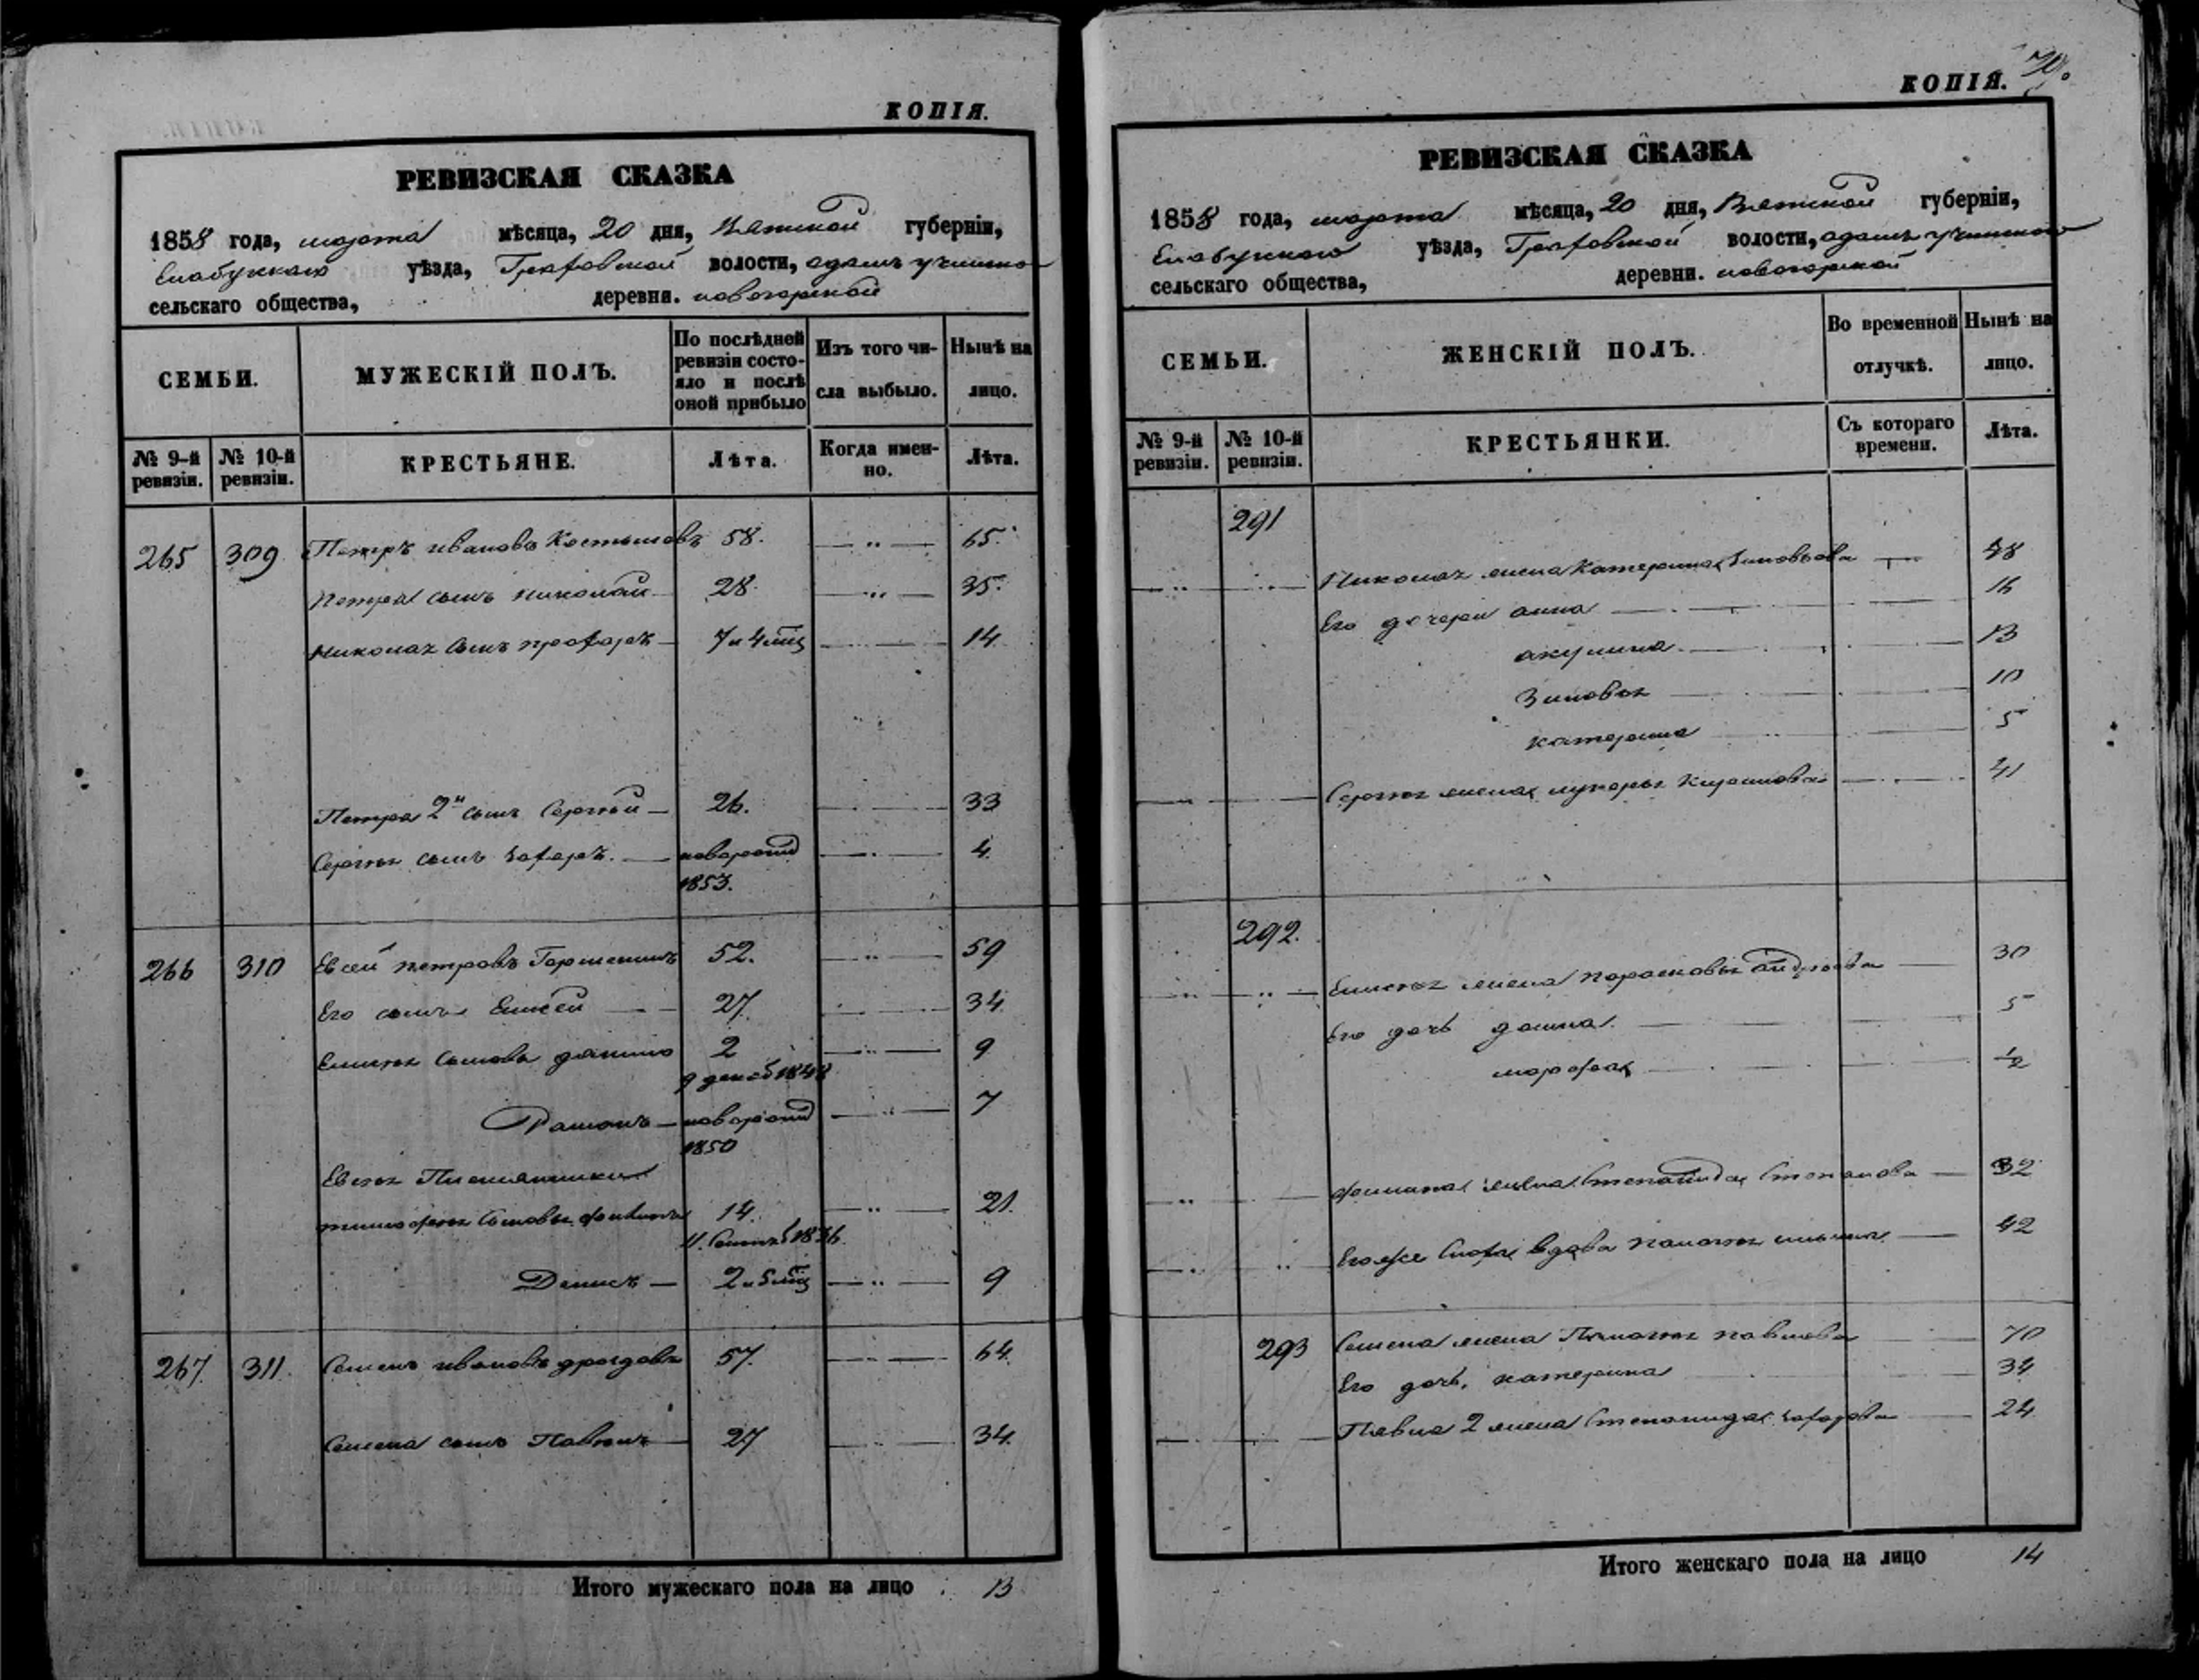 КОПІЯ.
РЕВИЗСКАЯ СКАЗКА
1858 года, марта мѣсяца, 20 дня, Вятской губерніи,
Елабужскаго уѣзда, Граховской волости,
сельскаго общества, деревни. новогорской
СЕМЬИ. МУЖЕСКІЙ ПОЛЪ. По послѣдней ревизіи состо-яло и послѣ оной прибыло Изъ того чи-сла выбыло. Нынѣ на лицо.
№ 9-й ревизіи. № 10-й ревизіи. КРЕСТЬЯНЕ. Лѣта. Когда имен-но. Лѣта.
265 309 Петръ ивановъ 58. — " — 65.
Петра сынъ николай 28. — " — 35.
николая сынъ 7 и 4 мѣц — 14.
Петра 2й сынъ Сергѣй — 26. — 33
Сергея сынъ захаръ. — новорожд — 4.
1853.
266 310 Евсей петровъ 52. — " — 59
Его сынъ Елисей — 27. — 34.
Елисея сыновья данило 2 — " — 9
9 декаб 1848
— новорожд — " — 7
1850
Евсея Племянники
тимофея сыновья 14. — " — 21.
1836.
Денисъ — 2 и 5 мѣц — " — 9
267. 311. Семенъ ивановъ дроздовъ 57. — " — 64.
Семена сынъ Павелъ — 27 — 34.
Итого мужескаго пола на лицо 13
КОПІЯ.
РЕВИЗСКАЯ СКАЗКА
1858 года, марта мѣсяца, 20 дня, Вятской губерніи,
Елабужскаго уѣзда, Граховской волости,
сельскаго общества, деревни. новогорской
СЕМЬИ. ЖЕНСКІЙ ПОЛЪ. Во временной отлучкѣ. Нынѣ на лицо.
№ 9-й ревизіи. № 10-й ревизіи. КРЕСТЬЯНКИ. Съ котораго времени. Лѣта.
291
Николая жена Катерина Зиновьева — 48
Его дочери анна — 16
акулина — 13
Зиновья — 10
катерина 5
Сергея жена лукерья — 41
292.
Елисея жена парасковья андреева — 30
Его дочь — 5
марфа — ½
жена Степанида Степанова — 32
Егоже Сноха вдова — 42
293 Семена жена Пелагея павлова — 70
Его дочь, катерина 34
Павла 2 жена Степанида захарова — 24
Итого женскаго пола на лицо 14